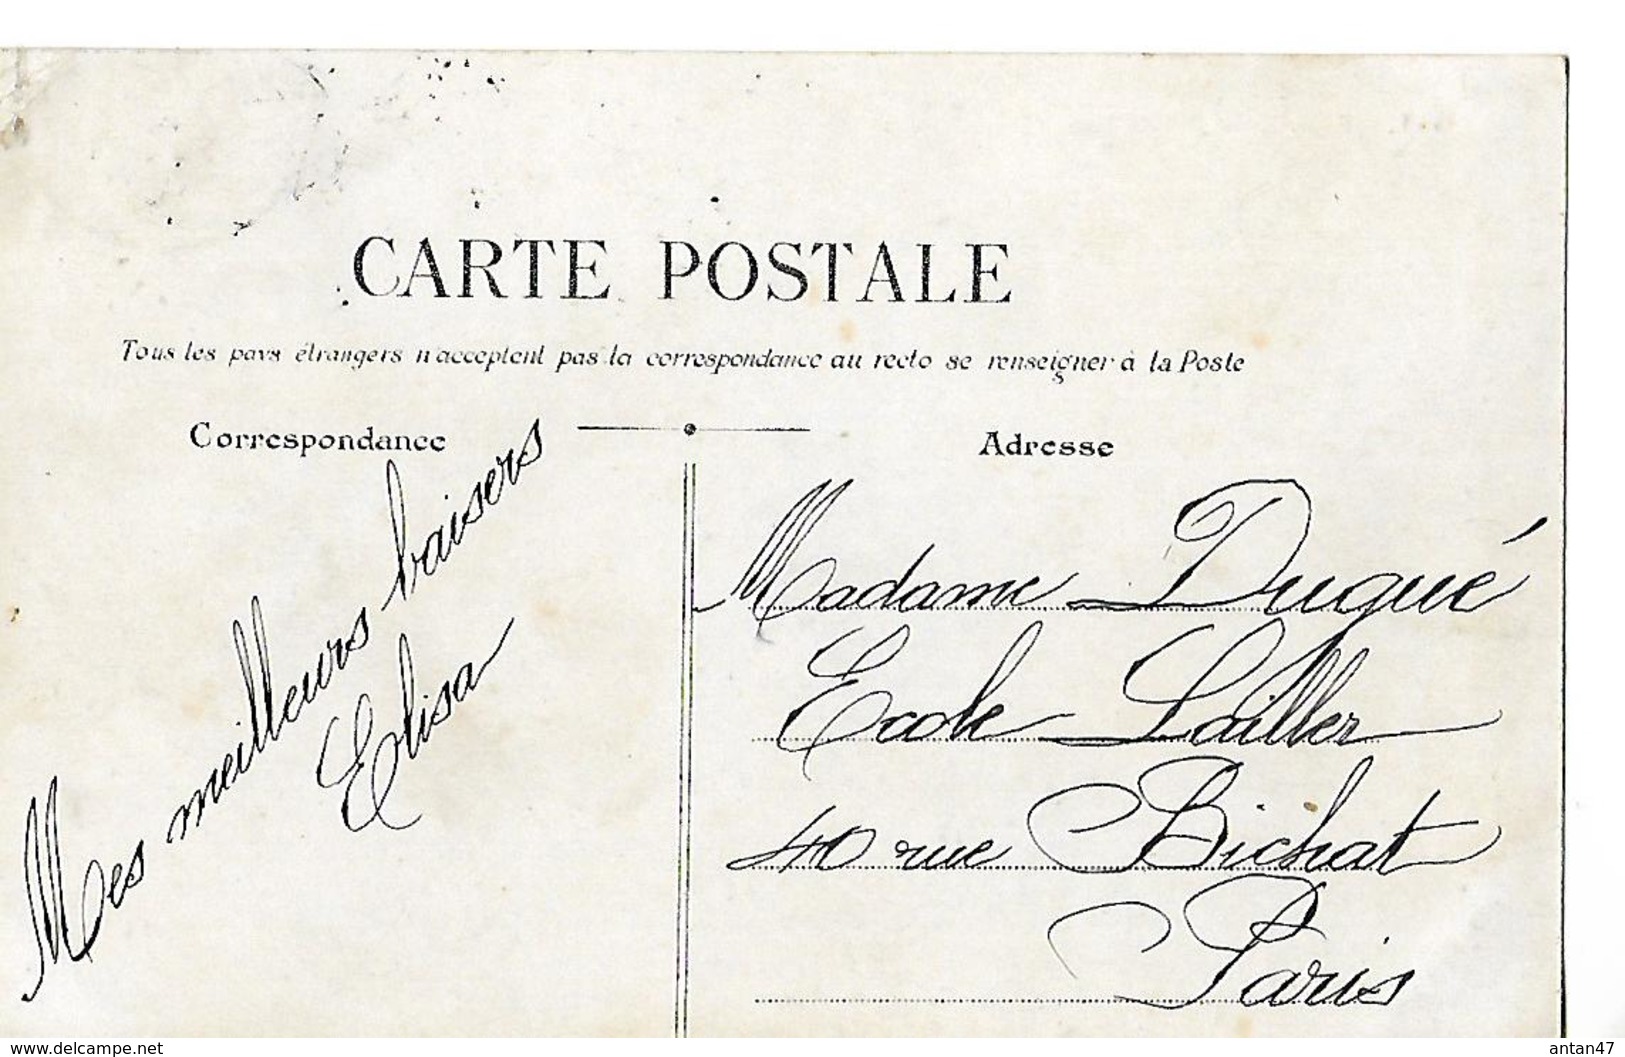 CARTE POSTALE
Tous les pays étrangers n'acceptent pas la correspondance au recto se renseigner à la Poste
Correspondance
Mes meilleurs baisers
Elisa
Adresse
Madame Dugué
Ecole Lailler
40 rue Bichat
Paris
www.delcampe.net
antan47